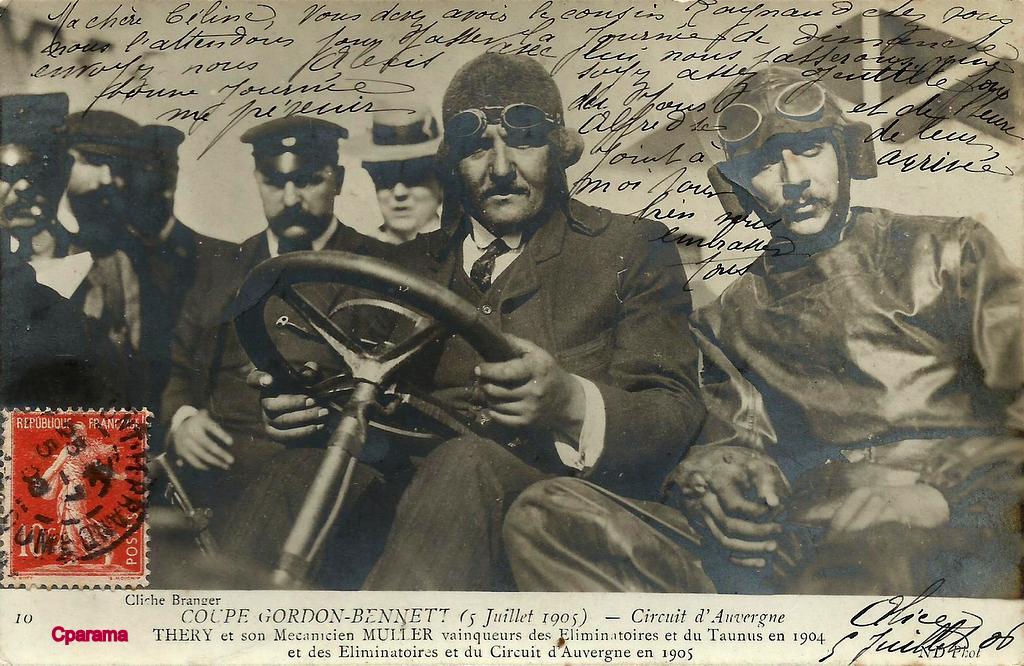 Ma chère Céline, Vous devez avoir le cousin Raynaud chez vous
nous l'attendons pour passer la journée de dimanche
envoyez nous Alexis avec lui nous passerons une
bonne journée soyez assez gentille pour
me prévenir du jour et de l'heure
Alfred se de leur
joint à arrivée
moi pour
bien vous
embrasser
tous
REPUBLIQUE FRANÇAISE
10
POSTES
Cliche Branger
10 COUPE GORDON-BENNETT (5 Juillet 1905) — Circuit d'Auvergne
THERY et son Mecanicien MULLER vainqueurs des Eliminatoires et du Taunus en 1904
et des Eliminatoires et du Circuit d'Auvergne en 1905
ND Phot
Alice
5 Juillet 06
Cparama